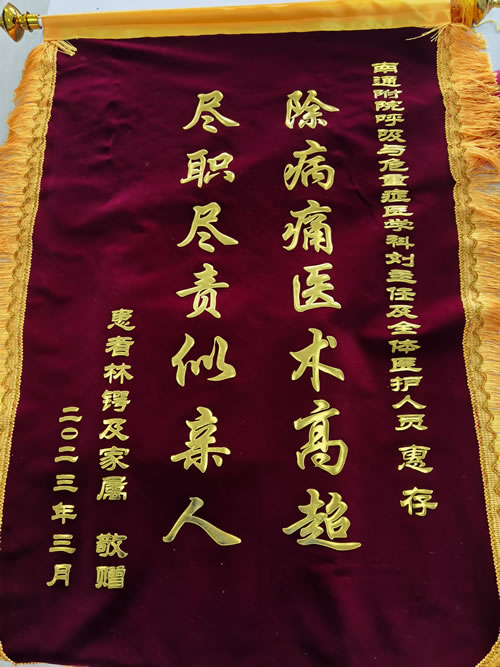 南通附院呼吸与危重症医学科刘主任及全体医护人员 惠存
除病痛医术高超
尽职尽责似亲人
患者林锷及家属 敬赠
二〇二三年三月